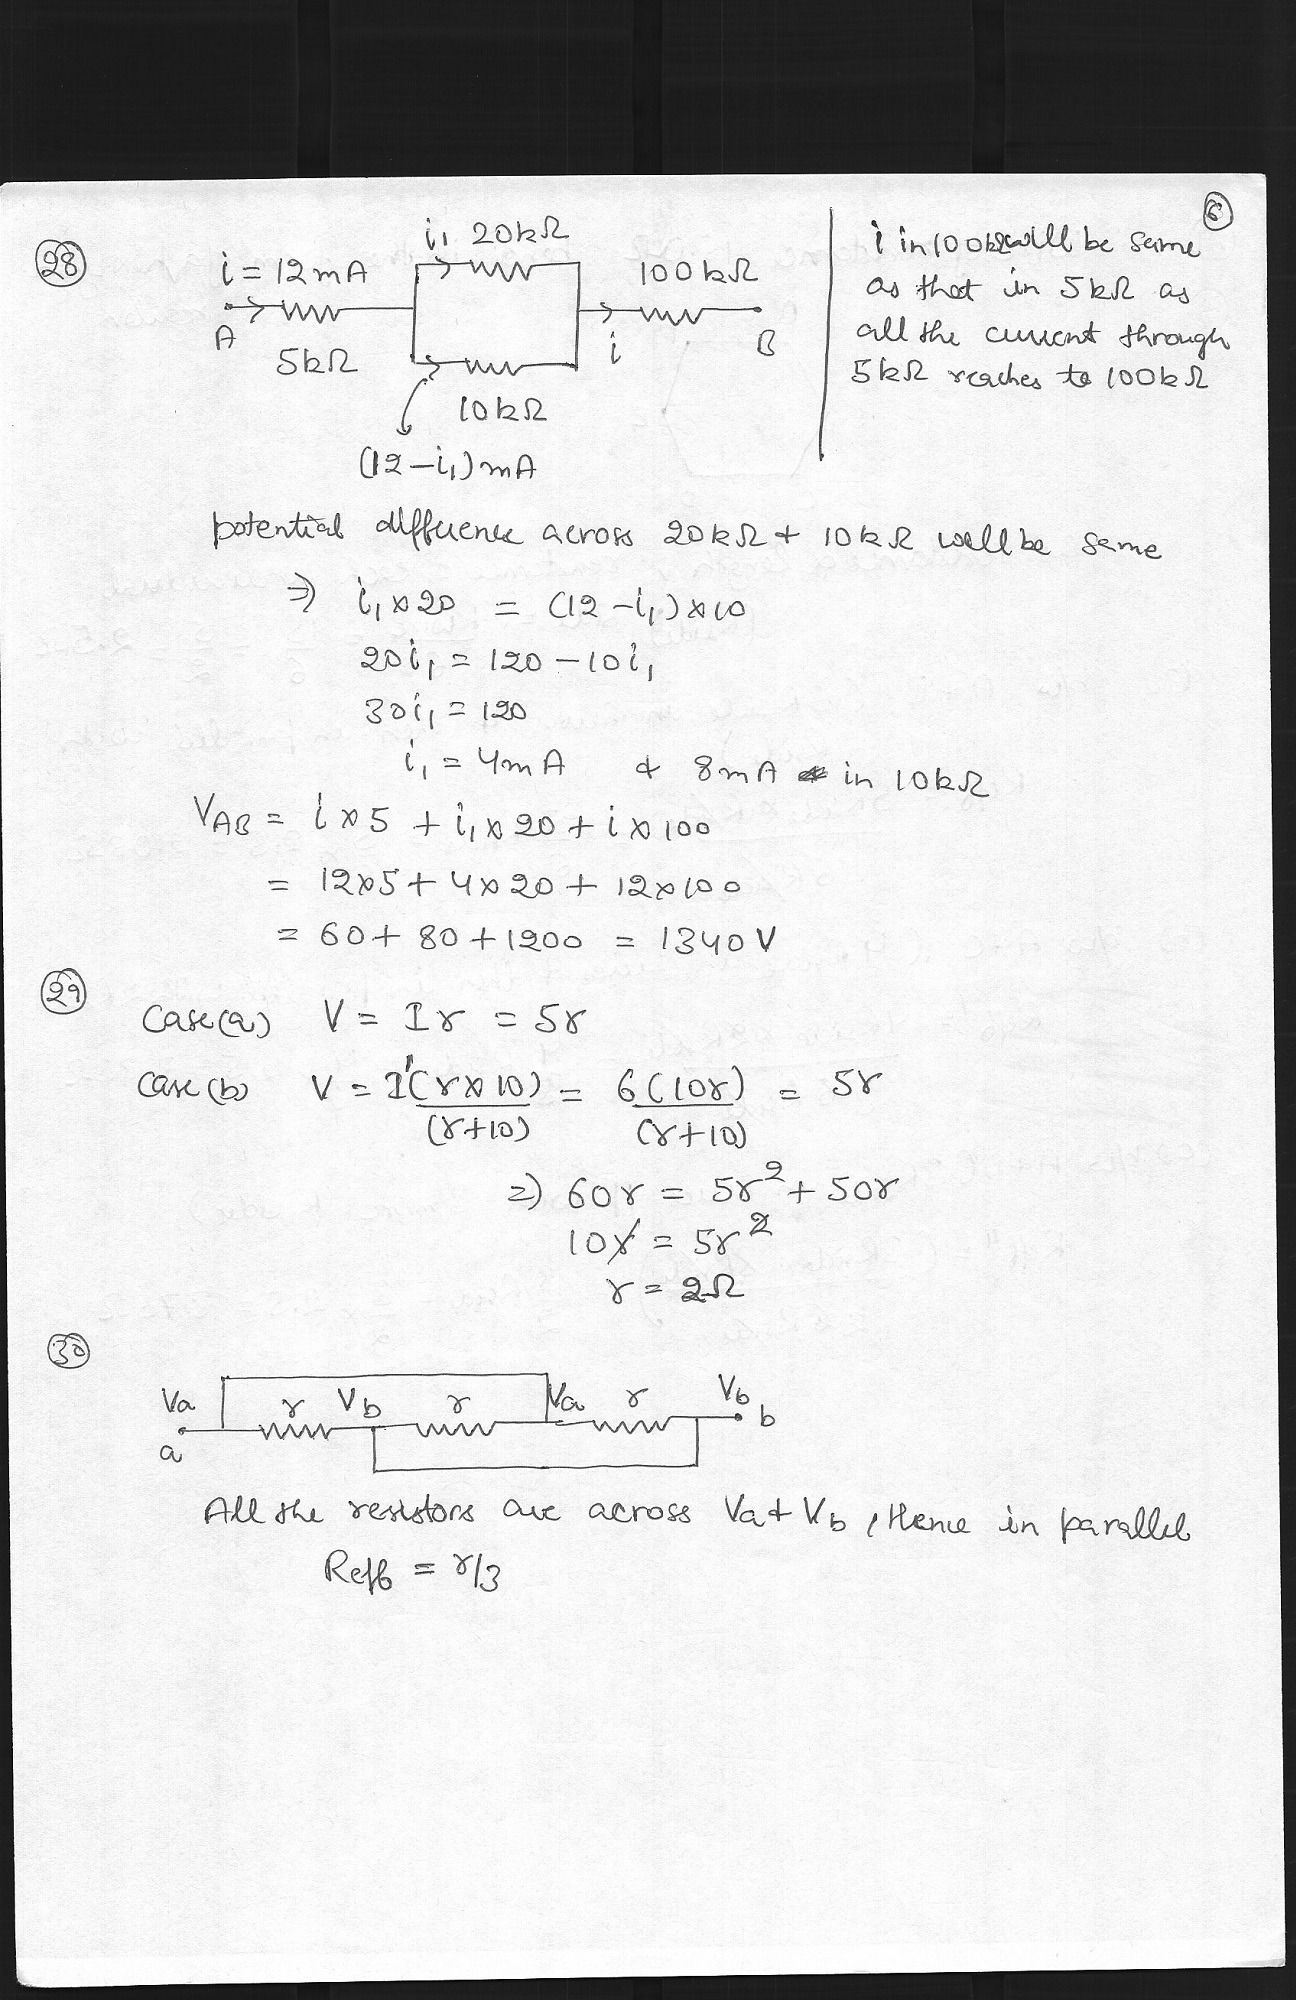 6
28
i₁ 20kΩ
i = 12mA
100kΩ
A
i
B
5kΩ
10kΩ
(12-i₁)mA
i in 100kΩ will be same
as that in 5kΩ as
all the current through
5kΩ reaches to 100kΩ
potential difference across 20kΩ & 10kΩ will be same
⇒ i₁×20 = (12-i₁)×10
20i₁ = 120-10i₁
30i₁ = 120
i₁ = 4mA & 8mA in 10kΩ
V_AB = i×5 + i₁×20 + i×100
= 12×5 + 4×20 + 12×100
= 60 + 80 + 1200 = 1340V
29
Case(a) V = Ir = 5r
Case(b) V = I'(r×10)/(r+10) = 6(10r)/(r+10) = 5r
⇒ 60r = 5r² + 50r
10r = 5r²
r = 2Ω
30
Va r Vb r Va r Vb
a b
All the resistors are across Va & Vb, Hence in parallel
Reff = r/3